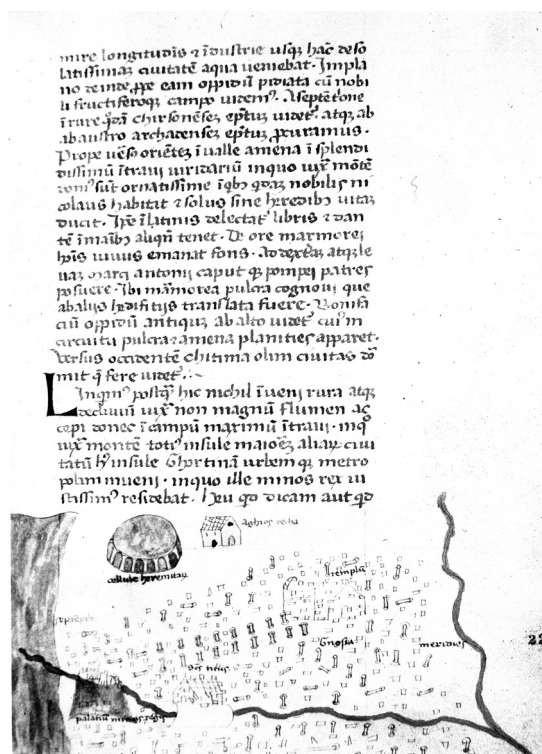 mire longitudīs ⁊ īdustrie usq; hac deso
latissimaz ciuitatē aqua ueniebat. Impla
no deinde ꝓpe eam oppidū pidiata cū nobi
li fructiferoq; campo uidemꝰ. Aseptētōne
ī rure qdā chirsonēsez eptuz uidet. atq; ab
ab austro archadensez eptuz
Prope uēso oriētez ī ualle amena ī splendi
dissimū ītraui uiridariū inquo
sūt ornatissime ī qbꝫ qdaz nobilis ni
colaus habitat ⁊ solus sine heredibꝫ uitaz
ducit. ī latinis delectat libris ⁊ dan
tē ī maībꝫ aliqñ tenet. De ore marmorei
hoīs uiuus emanat fons. Ad dextaz atqz le
uaz marci antonij caput ⁊ pompei patres
posuere. Ibi marmorea pulcra cognoui que
ab alijs hedifitijs translata fuere. Bonifa
ciū oppidū antiquz ab alto uidet cuiꝰ in
circuitu pulcra ⁊ amena planities apparet.
Versus occidentē chitima olim ciuitas
mit q̄ fere uidet.
Linqmꝰ postq̄ hic nichil īueni rura atqz
decliuiū non magnū flumen ac
cepi donec ī campū maximū ītraui. inq̄
montē totiꝰ insule maiorez aliaꝝ ciui
tatū hꝰ insule Ghortinā urbem ⁊ metro
polim inueni. inquo ille minos rex iu
stissimꝰ residebat. Heu qd dicam aut qd
aghios
cellule heremitaꝝ
templū
Gnosia
mercoies
sās titus
palatiū minois regis
22